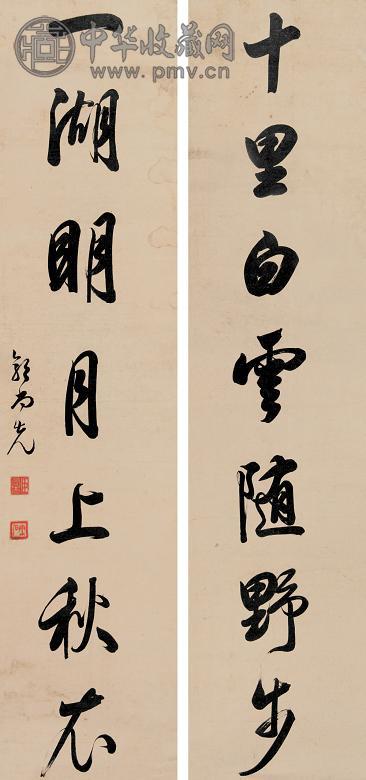 中华收藏网
www.pmv.cn
十里白雲随野步
一湖明月上秋衣
郭尚先